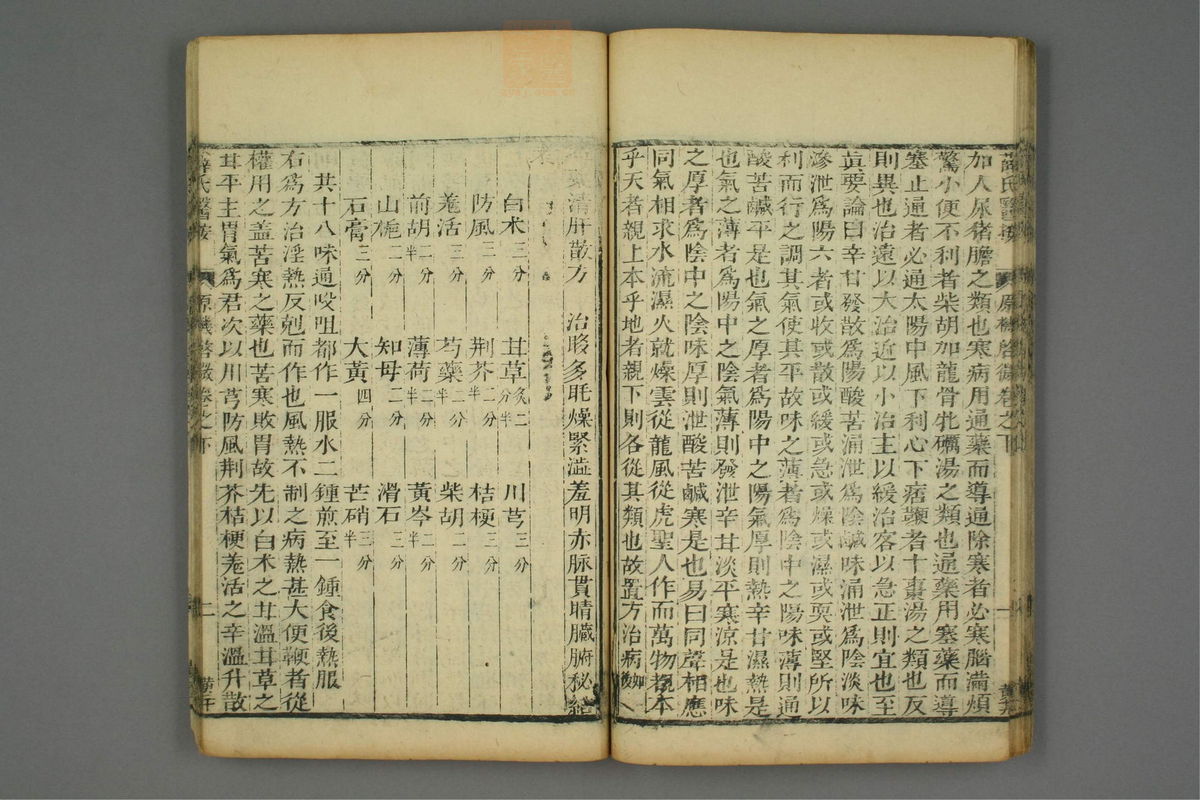 薛氏醫按 原機啓微卷之下 一
加人尿猪膽之類也寒病用通藥而導通除寒者必寒腦滿煩
驚小便不利者柴胡加龍骨牡礪湯之類也通藥用塞藥而導
塞止通者必通太陽中風下利心下痞鞕者十棗湯之類也反
則異也治遠以大治近以小治主以緩治客以急正則宜也至
眞要論曰辛甘發散爲陽酸苦涌泄爲陰鹹味涌泄爲陰淡味
滲泄爲陽六者或收或散或緩或急或燥或濕或耎或堅所以
利而行之調其氣使其平故味之薄者爲陰中之陽味薄則通
酸苦鹹平是也氣之厚者爲陽中之陽氣厚則熱辛甘濕熱是
也氣之薄者爲陽中之陰氣薄則發泄辛甘淡平寒涼是也味
之厚者爲陰中之陰味厚則泄酸苦鹹寒是也易曰同聲相應
同氣相求水流濕火就燥雲從龍風從虎聖人作而萬物覩本
乎天者親上本乎地者親下則各從其類也故置方治病如後
清肝散方 治眵多眊燥緊澁羞明赤脉貫睛臟腑秘結
白术三分 甘草炙二分半 川芎三分
防風二分 荆芥二分半 桔梗三分
羗活二分 芍藥二分半 柴胡二分
前胡二分半 薄荷二分半 黃芩二分半
山梔二分 知母二分 滑石三分
石膏三分 大黃四分 芒硝三分半
共十八味通㕮咀都作一服水二鍾煎至一鍾食後熱服
右爲方治淫熱反剋而作也風熱不制之病熱甚大便鞕者從
權用之盖苦寒之藥也苦寒敗胃故先以白术之甘溫甘草之
甘平主胃氣爲君次以川芎防風荆芥桔梗羗活之辛溫升散
薛氏醫按 原機啓微卷之下 二